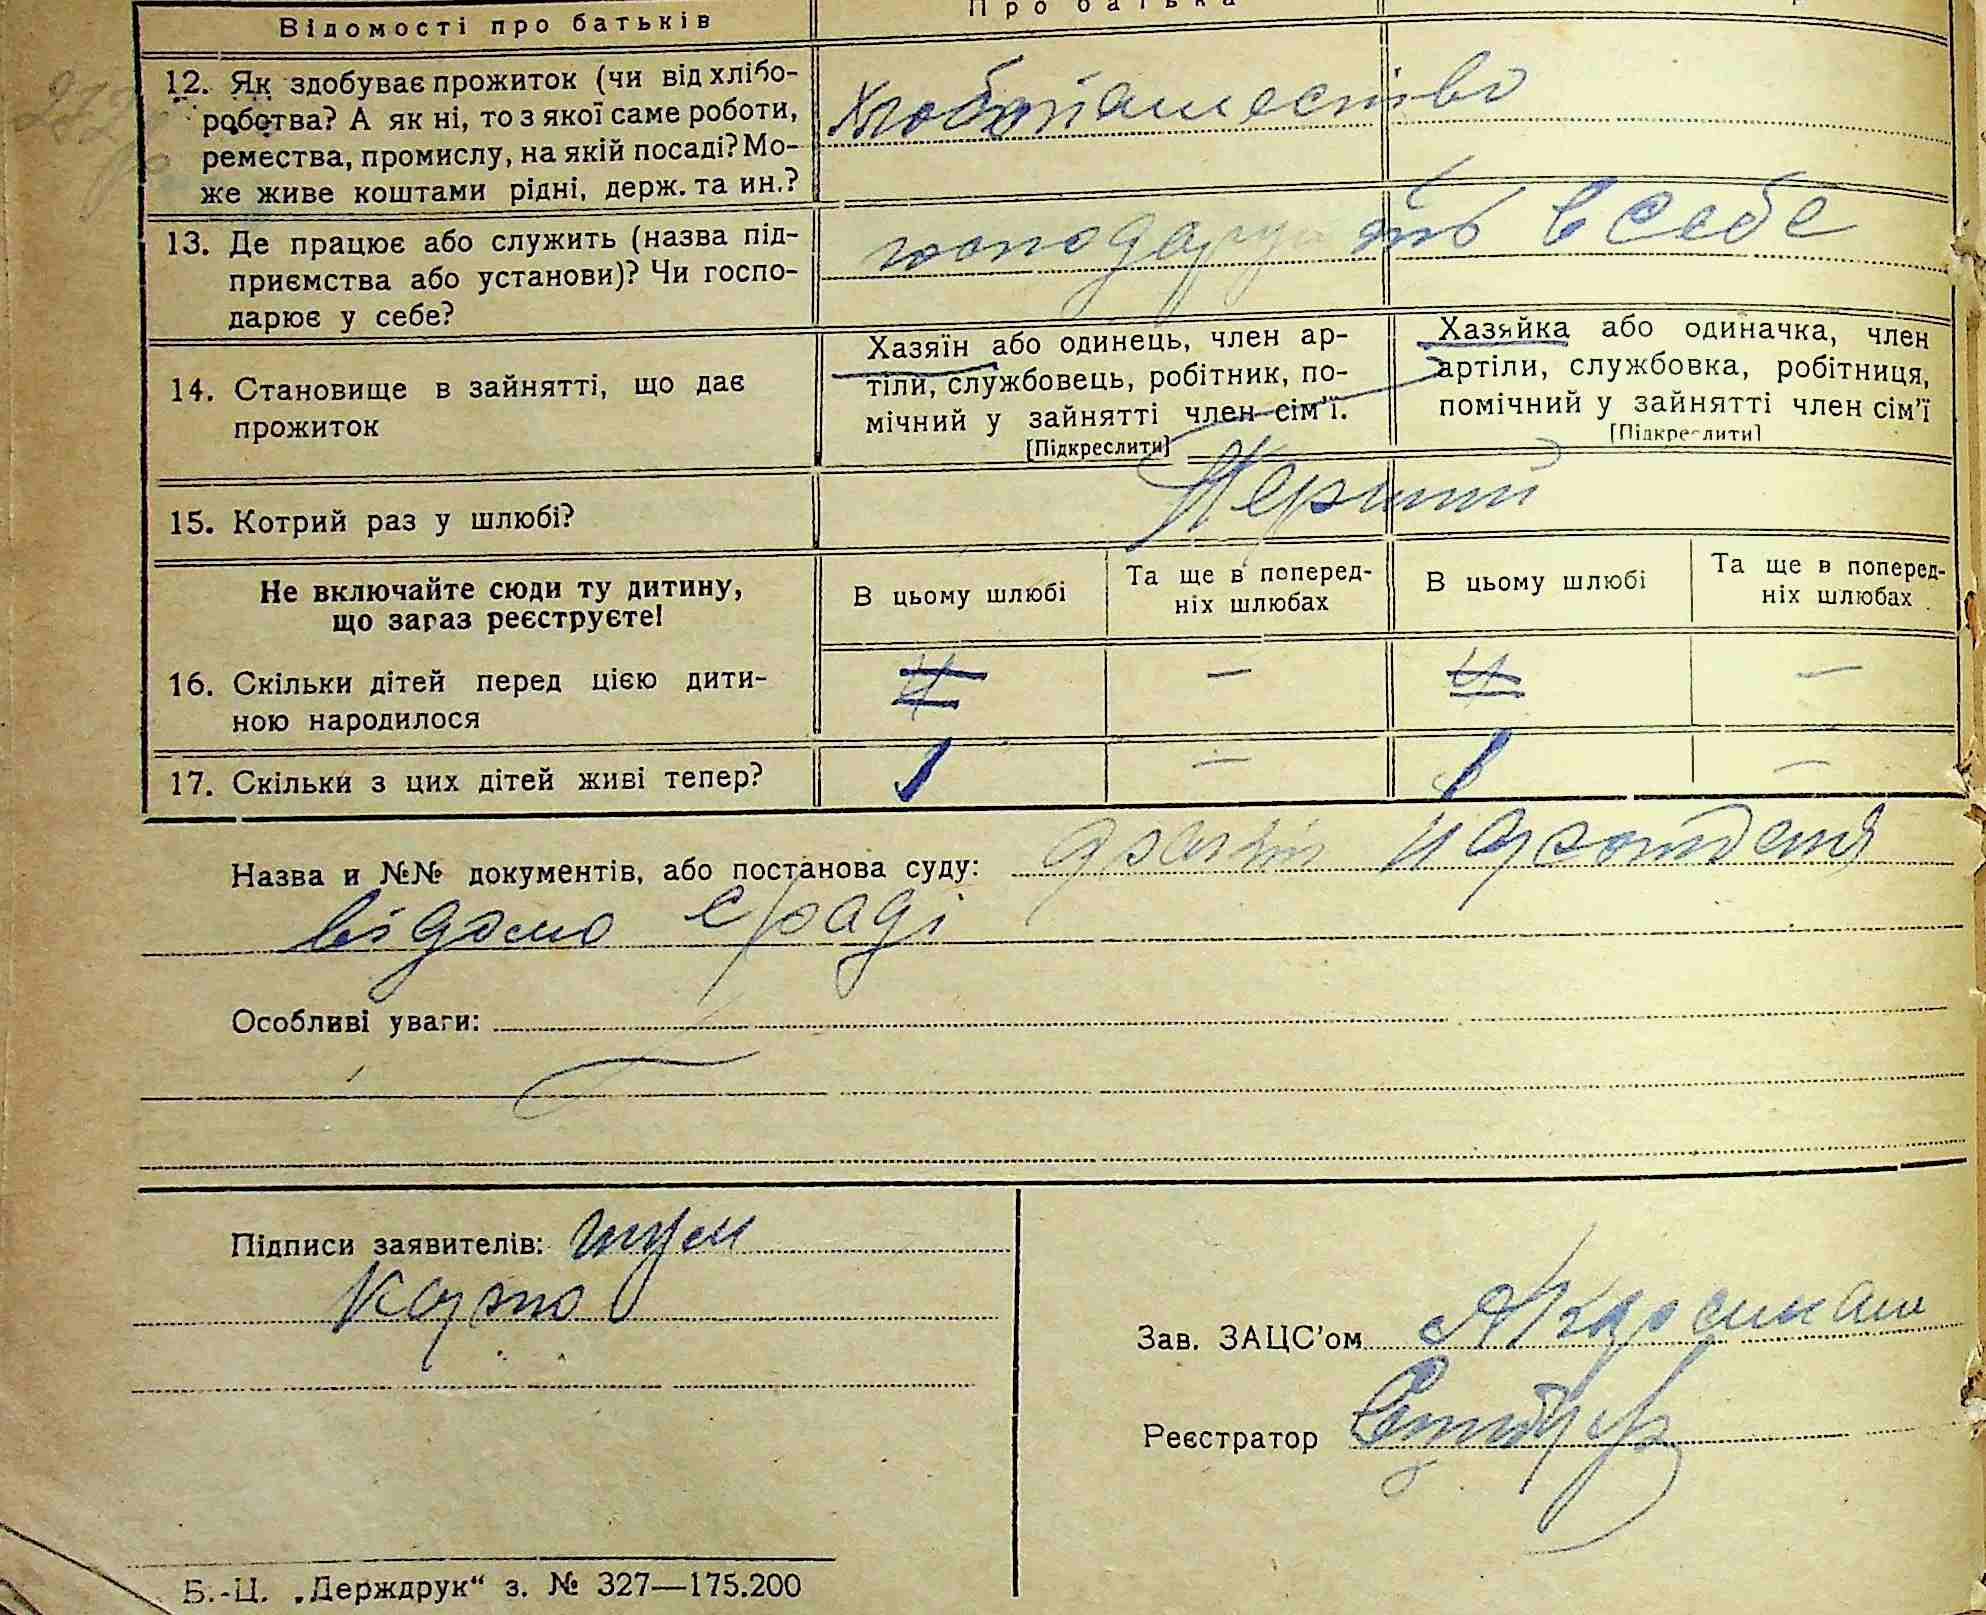 Відомості про батьків
Про батька
12. Як здобуває прожиток (чи від хлібо-
робства? А як ні, то з якої саме роботи,
ремества, промислу, на якій посаді? Мо-
же живе коштами рідні, держ. та ин.?
Хлібопашество
13. Де працює або служить (назва під-
приємства або установи)? Чи госпо-
дарює у себе?
господарують в себе
14. Становище в зайнятті, що дає
прожиток
Хазяїн або одинець, член ар-
тіли, службовець, робітник, по-
мічний у зайнятті член сім'ї.
[Підкреслити]
Хазяйка або одиначка, член
артіли, службовка, робітниця,
помічний у зайнятті член сім'ї
[Підкреслити]
15. Котрий раз у шлюбі?
Перший
Не включайте сюди ту дитину,
що зараз реєструєте!
В цьому шлюбі
Та ще в поперед-
ніх шлюбах
В цьому шлюбі
Та ще в поперед-
ніх шлюбах
16. Скільки дітей перед цією дити-
ною народилося
4 — 4 —
17. Скільки з цих дітей живі тепер?
— —
Назва и №№ документів, або постанова суду:
відомо с/раді
Особливі уваги:
Підписи заявителів:
Зав. ЗАЦС'ом
Реєстратор
Б.-Ц. „Держдрук“ з. № 327—175.200